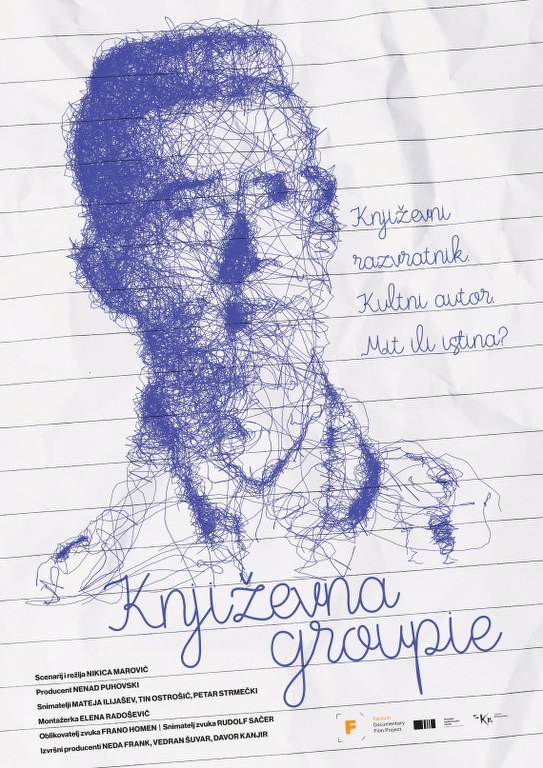 Književni
razvratnik.
Kultni autor.
Mit ili istina?
Književna
groupie
Scenarij i režija NIKICA MAROVIĆ
Producent NENAD PUHOVSKI
Snimatelji MATEJA ILIJAŠEV, TIN OSTROŠIĆ, PETAR STRMEČKI
Montažerka ELENA RADOŠEVIĆ
Oblikovatelj zvuka FRANO HOMEN | Snimatelj zvuka RUDOLF SAČER
Izvršni producenti NEDA FRANK, VEDRAN ŠUVAR, DAVOR KANJIR
F
Factum
Documentary
Film Project
Kr.